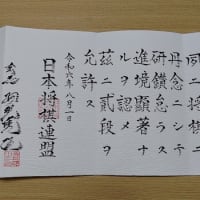 夙ニ将棋ニ
丹念ニシテ
研鑽怠ナク
進境顕著ナ
ルヲ認メ
茲ニ貳段ヲ
允許ス
令和六年八月一日
日本将棋連盟